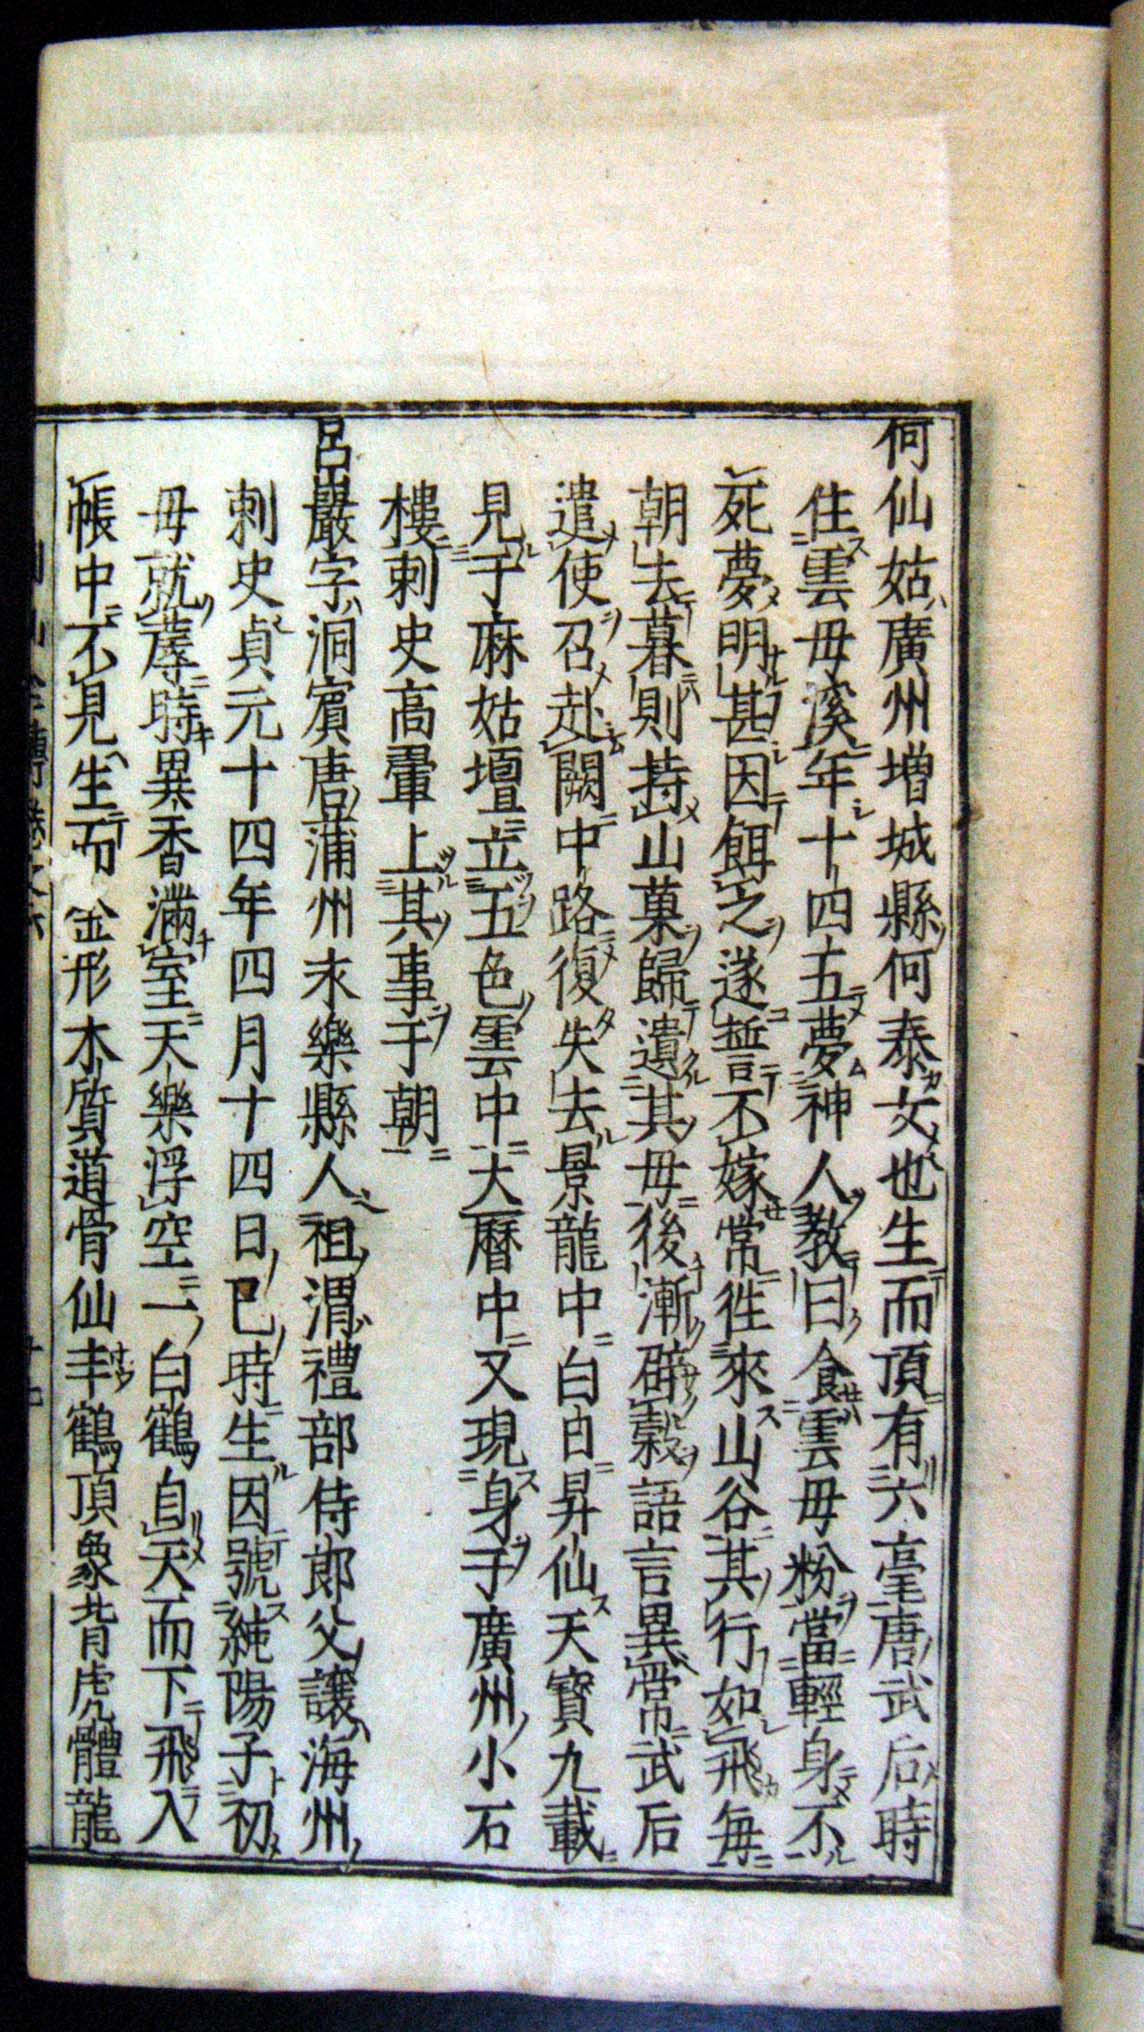 何仙姑廣州増城縣何泰女也生而頂有六毫唐武后時
住雲母溪年十四五夢神人教曰食雲母粉當輕身不
死夢明甚因餌之遂誓不嫁常徃來山谷其行如飛毎
朝去暮則持山菓歸遺其母後漸辟糓語言異常武后
遣使召赴闕中路復失去景龍中白日昇仙天寶九載
見于麻姑壇立五色雲中大曆中又現身于廣州小石
樓刺史高翬上其事于朝
呂嵓字洞賔唐蒲州永樂縣人祖渭禮部侍郎父讓海州
刺史貞元十四年四月十四日巳時生因號純陽子初
母就蓐時異香滿室天樂浮空一白鶴自天而下飛入
帳中不見生而金形木質道骨仙丰鶴頂龜背虎體龍